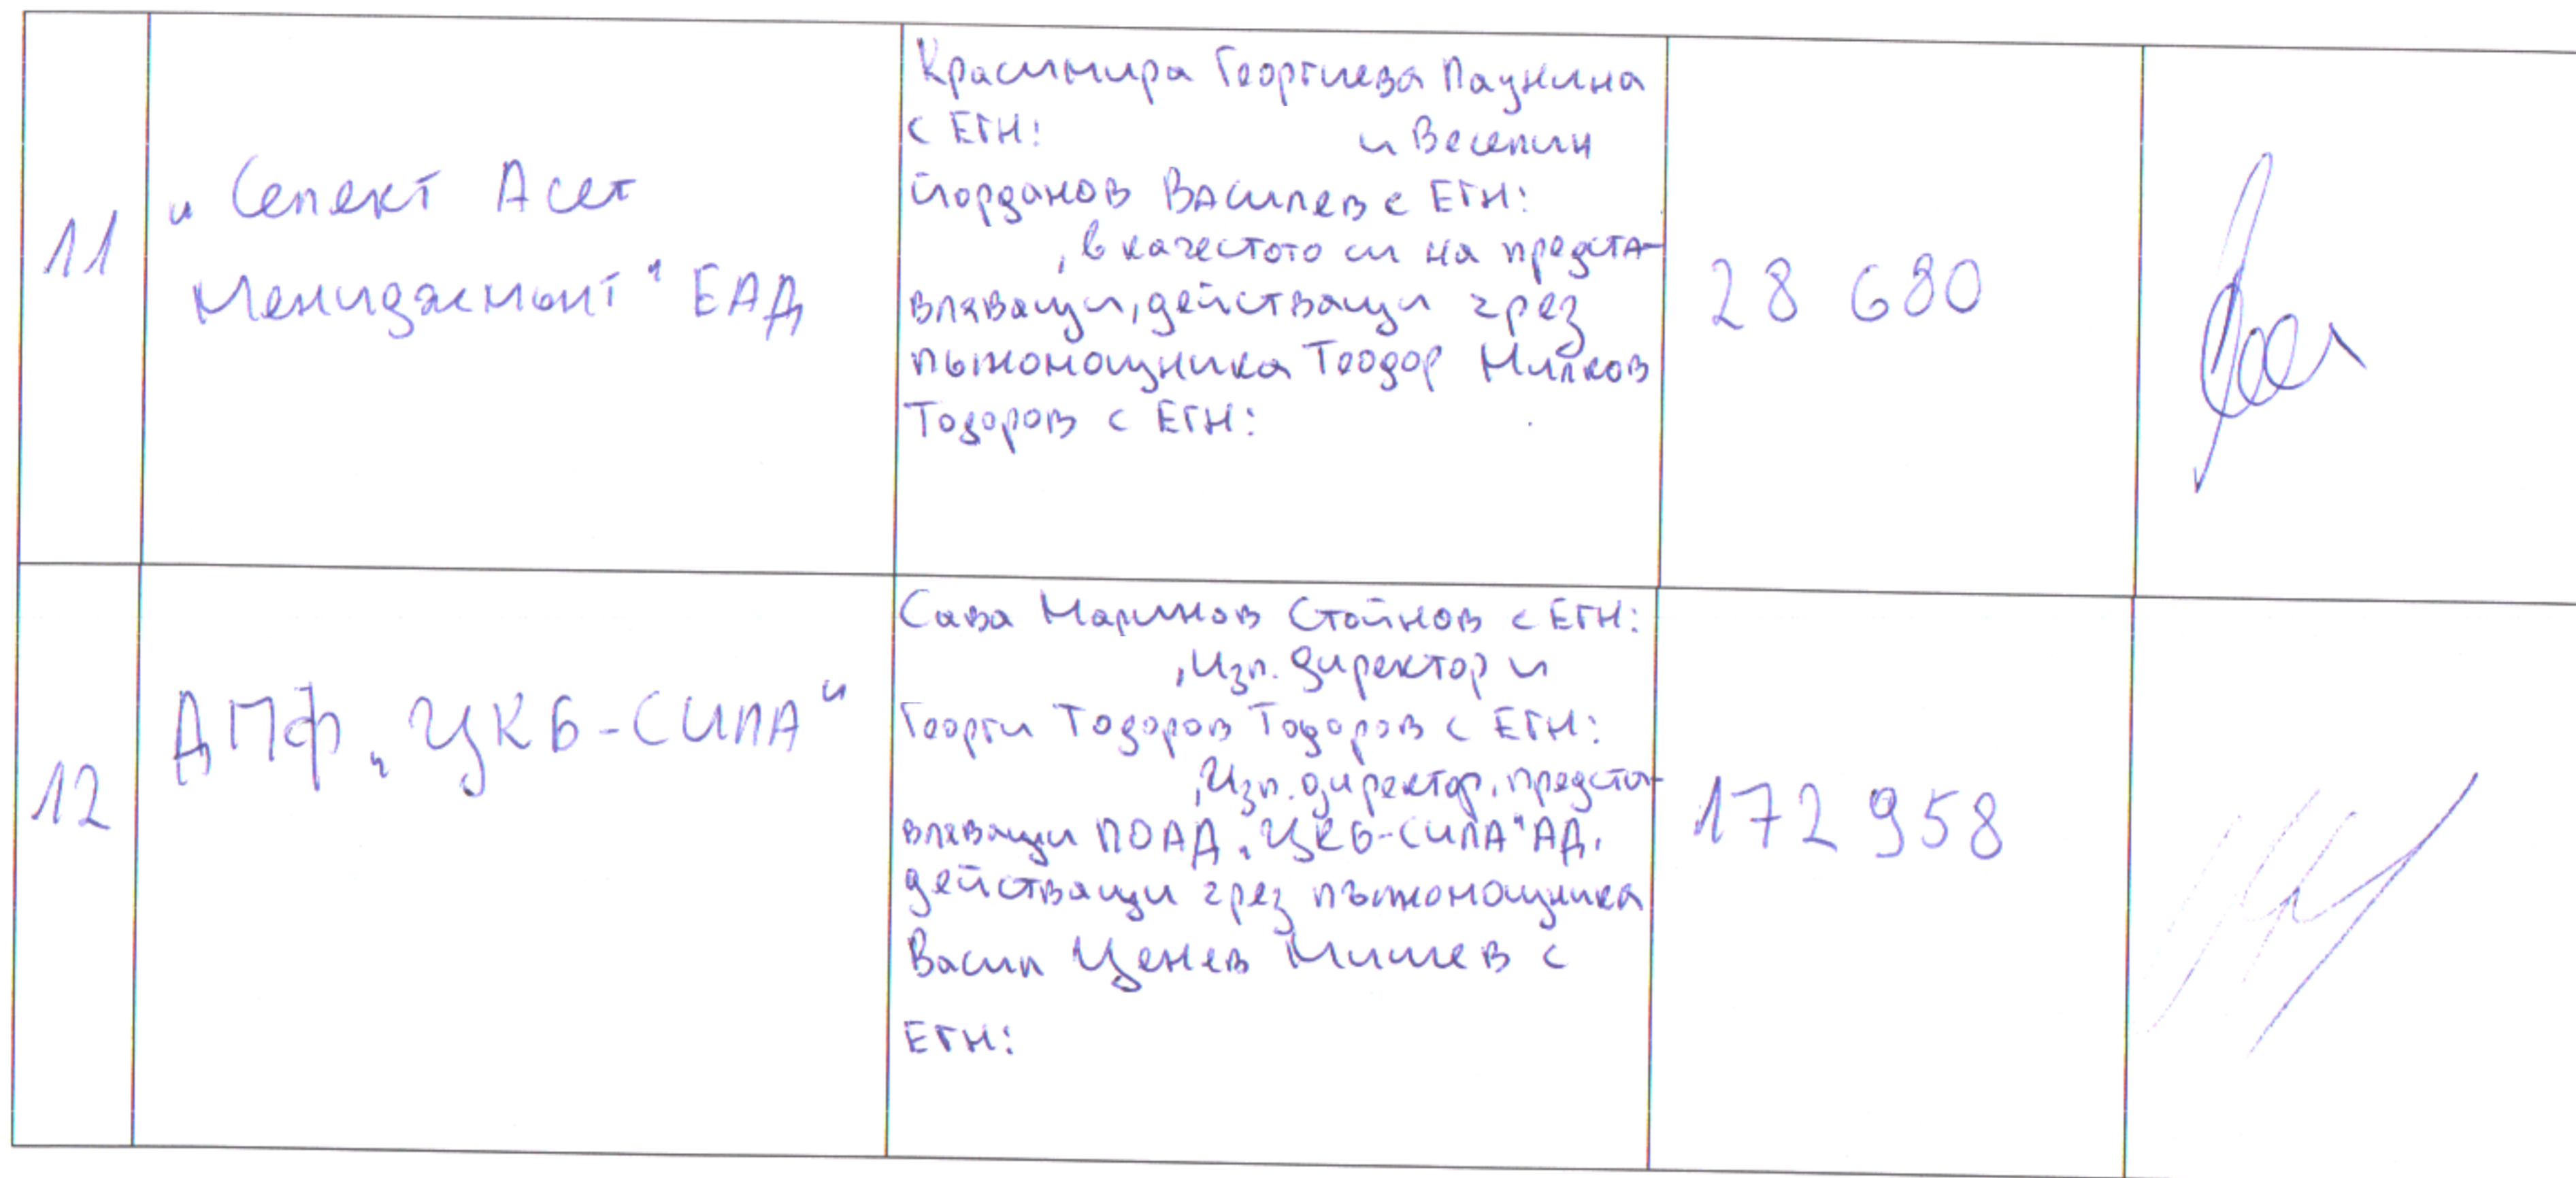 11
„Селект Асет
Мениджмънт" ЕАД
Красимира Георгиева Паунина
с ЕГН: и Веселин
Йорданов Василев с ЕГН:
, в качестото си на предста-
вляващи, действащи чрез
пълномощника Теодор Милков
Тодоров с ЕГН:
28 680
12
ДПФ „ЦКБ-СИЛА"
Сава Маринов Стойнов с ЕГН:
, Изп. директор и
Георги Тодоров Тодоров с ЕГН:
, Изп. директор, предста-
вляващи ПОАД „ЦКБ-СИЛА" АД,
действащи чрез пълномощника
Васил Ценев Мишев с
ЕГН:
172 958